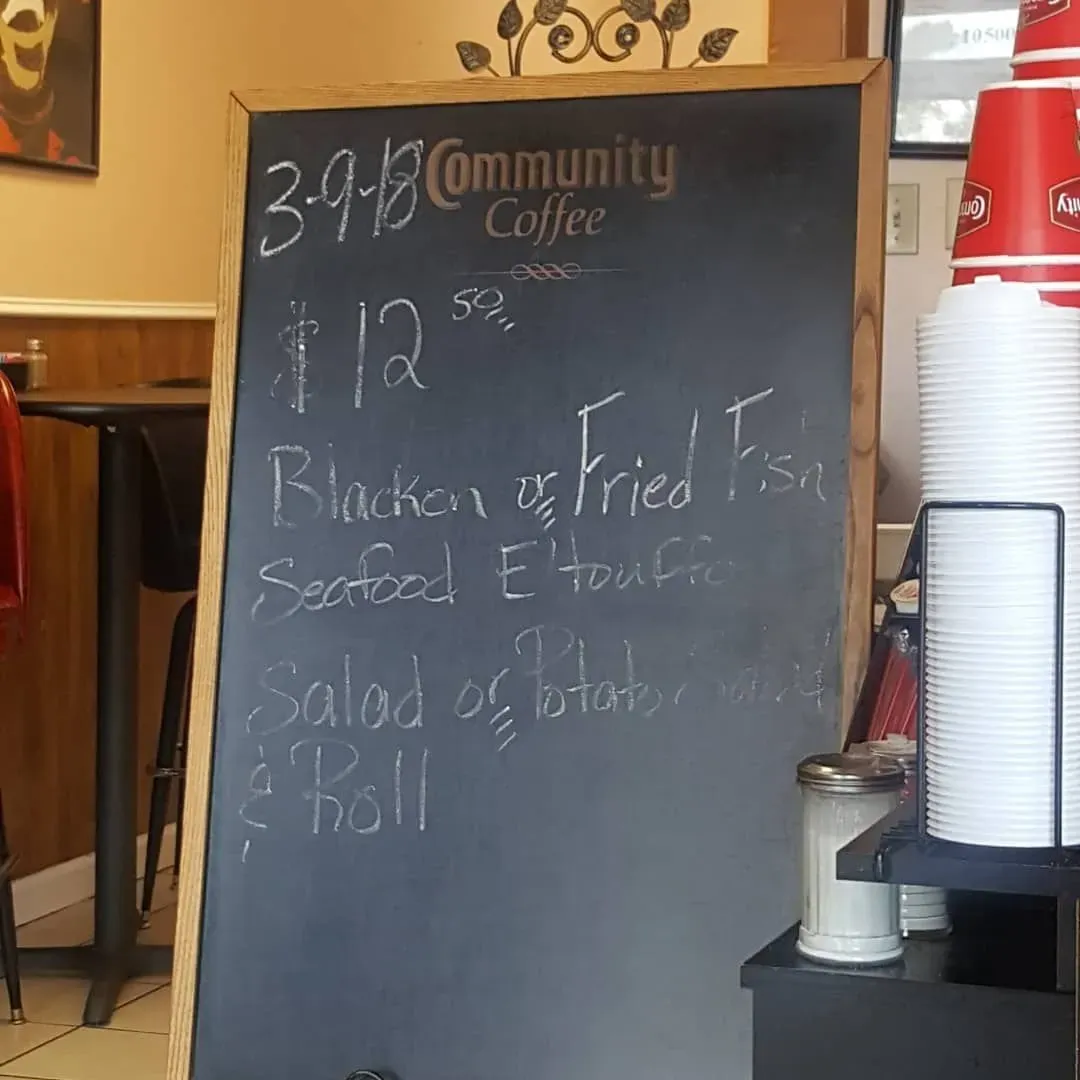 3-9-18 Community
Coffee
$ 12 50
Blacken or Fried Fish
Seafood E'touffe
Salad or Potato Salad
& Roll
10500